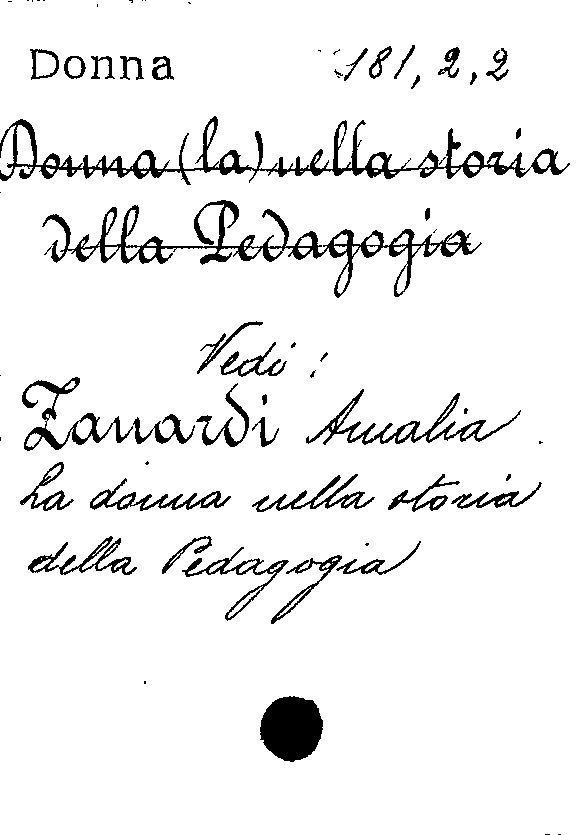 Donna 181, 2, 2
Donna (la) nella storia
della Pedagogia
Vedi :
Zanardi Amalia
La donna nella storia
della Pedagogia